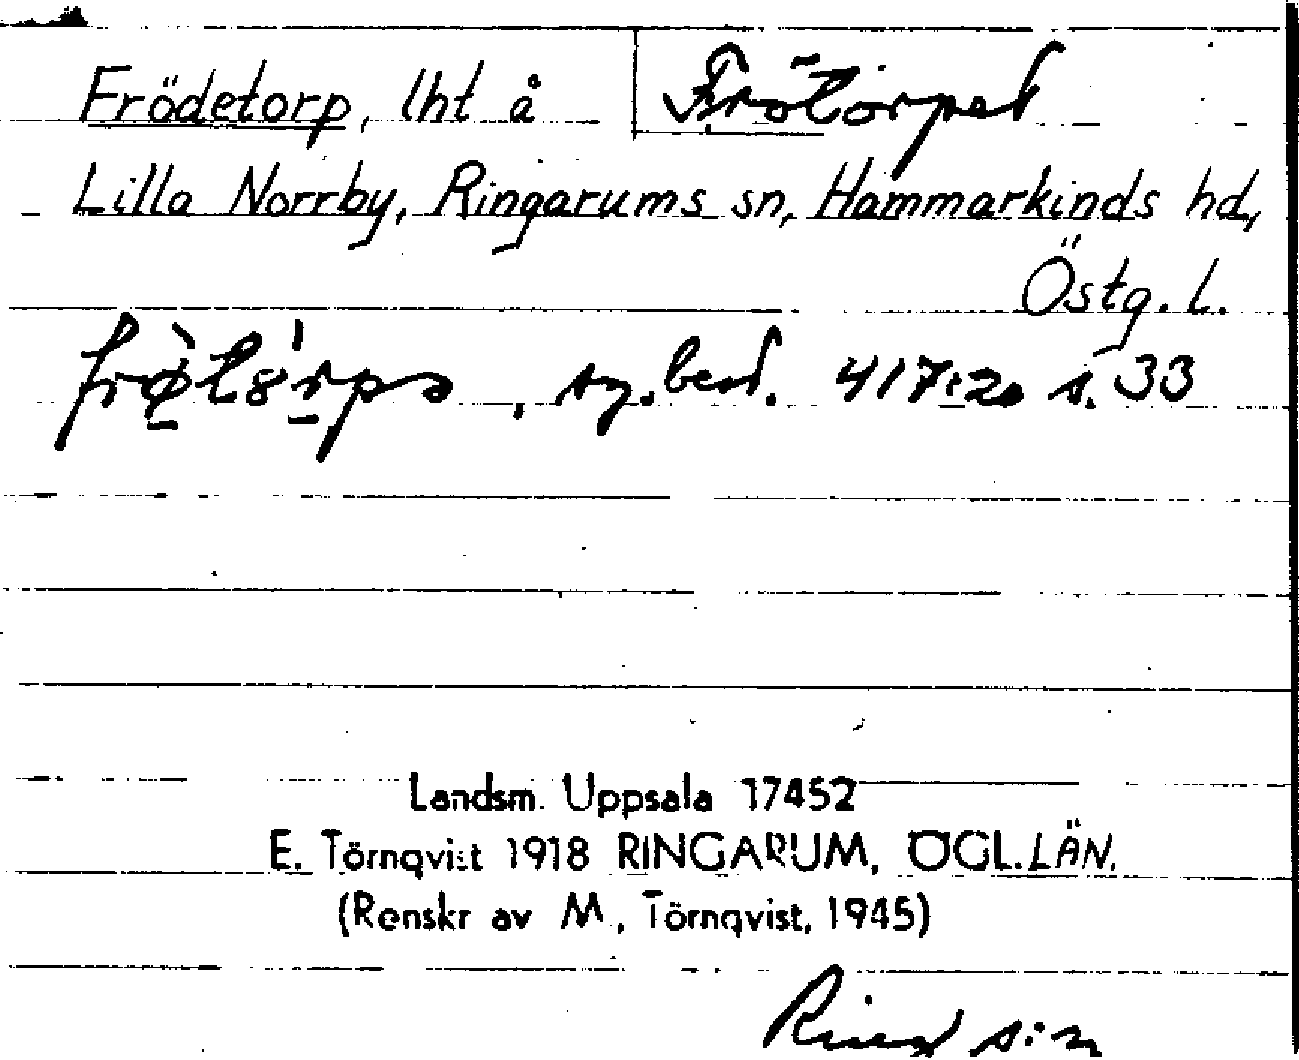 Frödetorp, lht å Frötorpet
Lilla Norrby, Ringarums sn, Hammarkinds hd,
Östg. l.
, ty. bert. 417:20 s. 33
Landsm. Uppsala 17452
E. Törnqvist 1918 RINGARUM, ÖGL. LÄN.
(Renskr av M. Törnqvist, 1945)